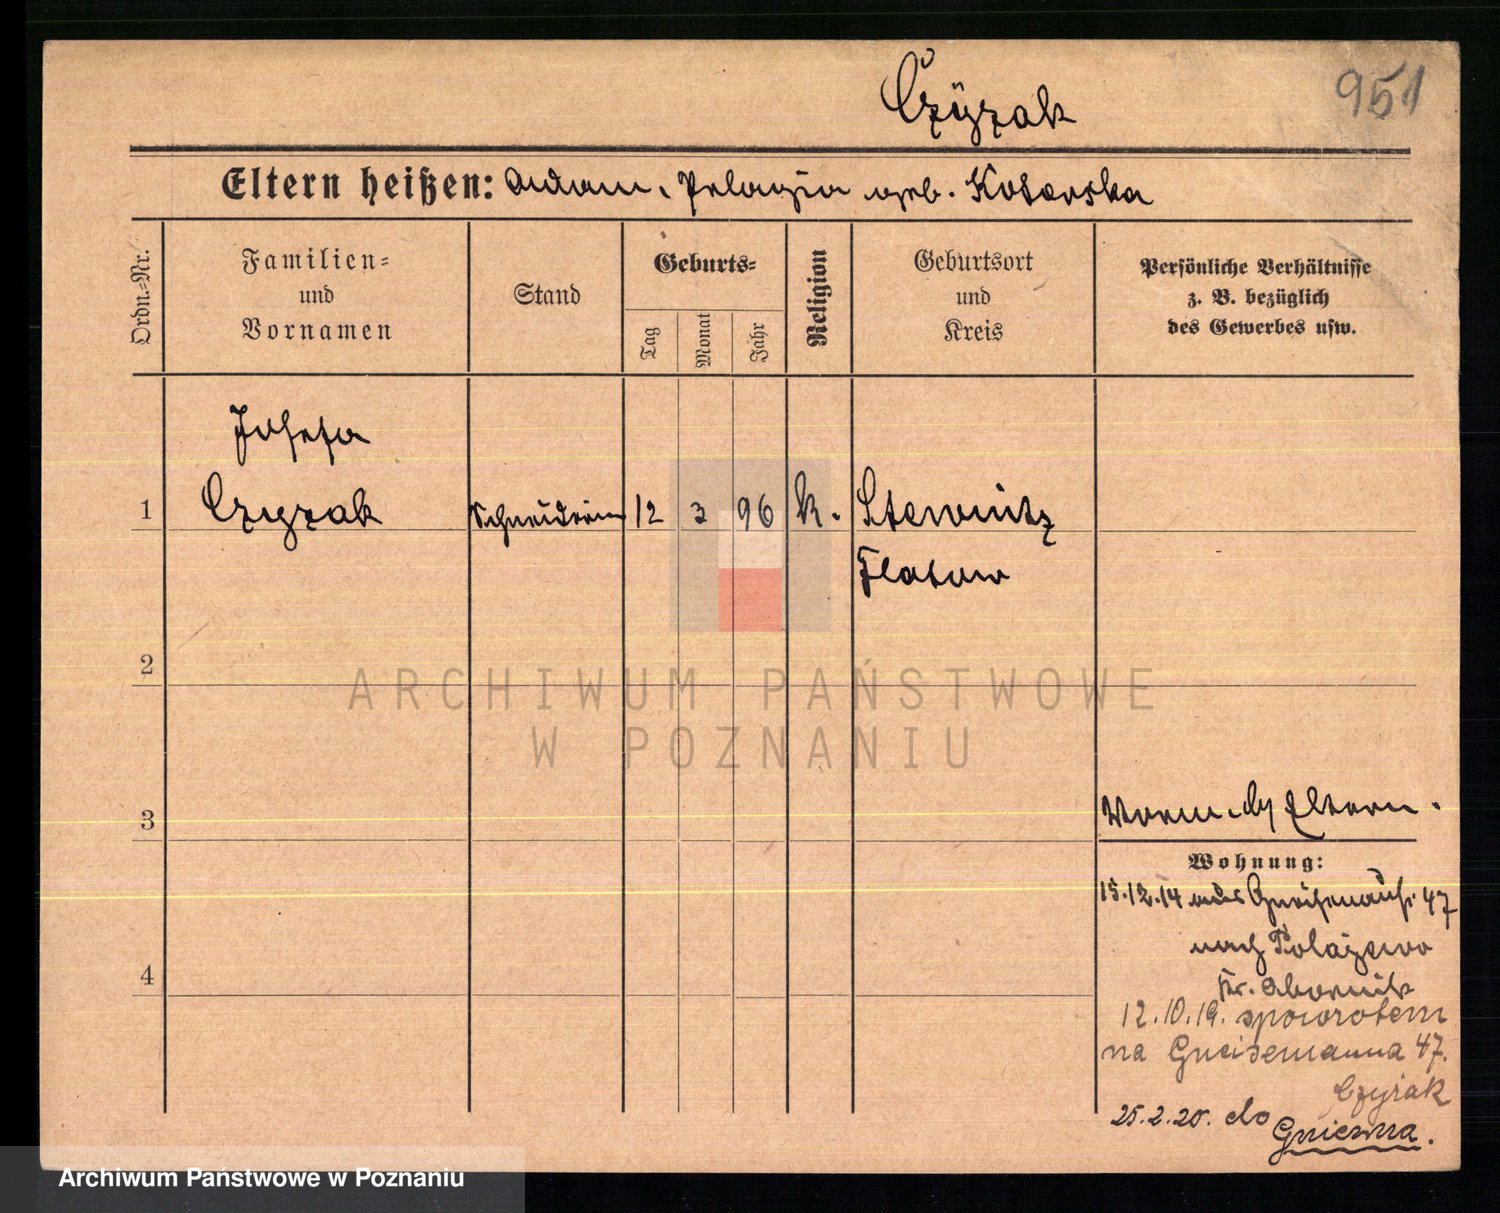 Czÿzak
951
Eltern heißen: Adam, Pelagia geb. Kotarska
Ordn.-Nr.
Familien-
und
Vornamen
Stand
Geburts-
Tag
Monat
Jahr
Religion
Geburtsort
und
Kreis
Persönliche Verhältnisse
z. B. bezüglich
des Gewerbes usw.
Josefa
1 Czyzak Schneiderin 12 3 96 k. Stewnitz
Flatow
2
ARCHIWUM PAŃSTWOWE
W POZNANIU
3
Vorm. Eltern.
Wohnung:
15.12.14 aus Gneisenaustr. 47
nach Polajewo
4
Kr. Obornik
12.10.19. spowrotem
na Gneisemanna 47.
Czyżak
25.2.20. do
Gniezna.
Archiwum Państwowe w Poznaniu